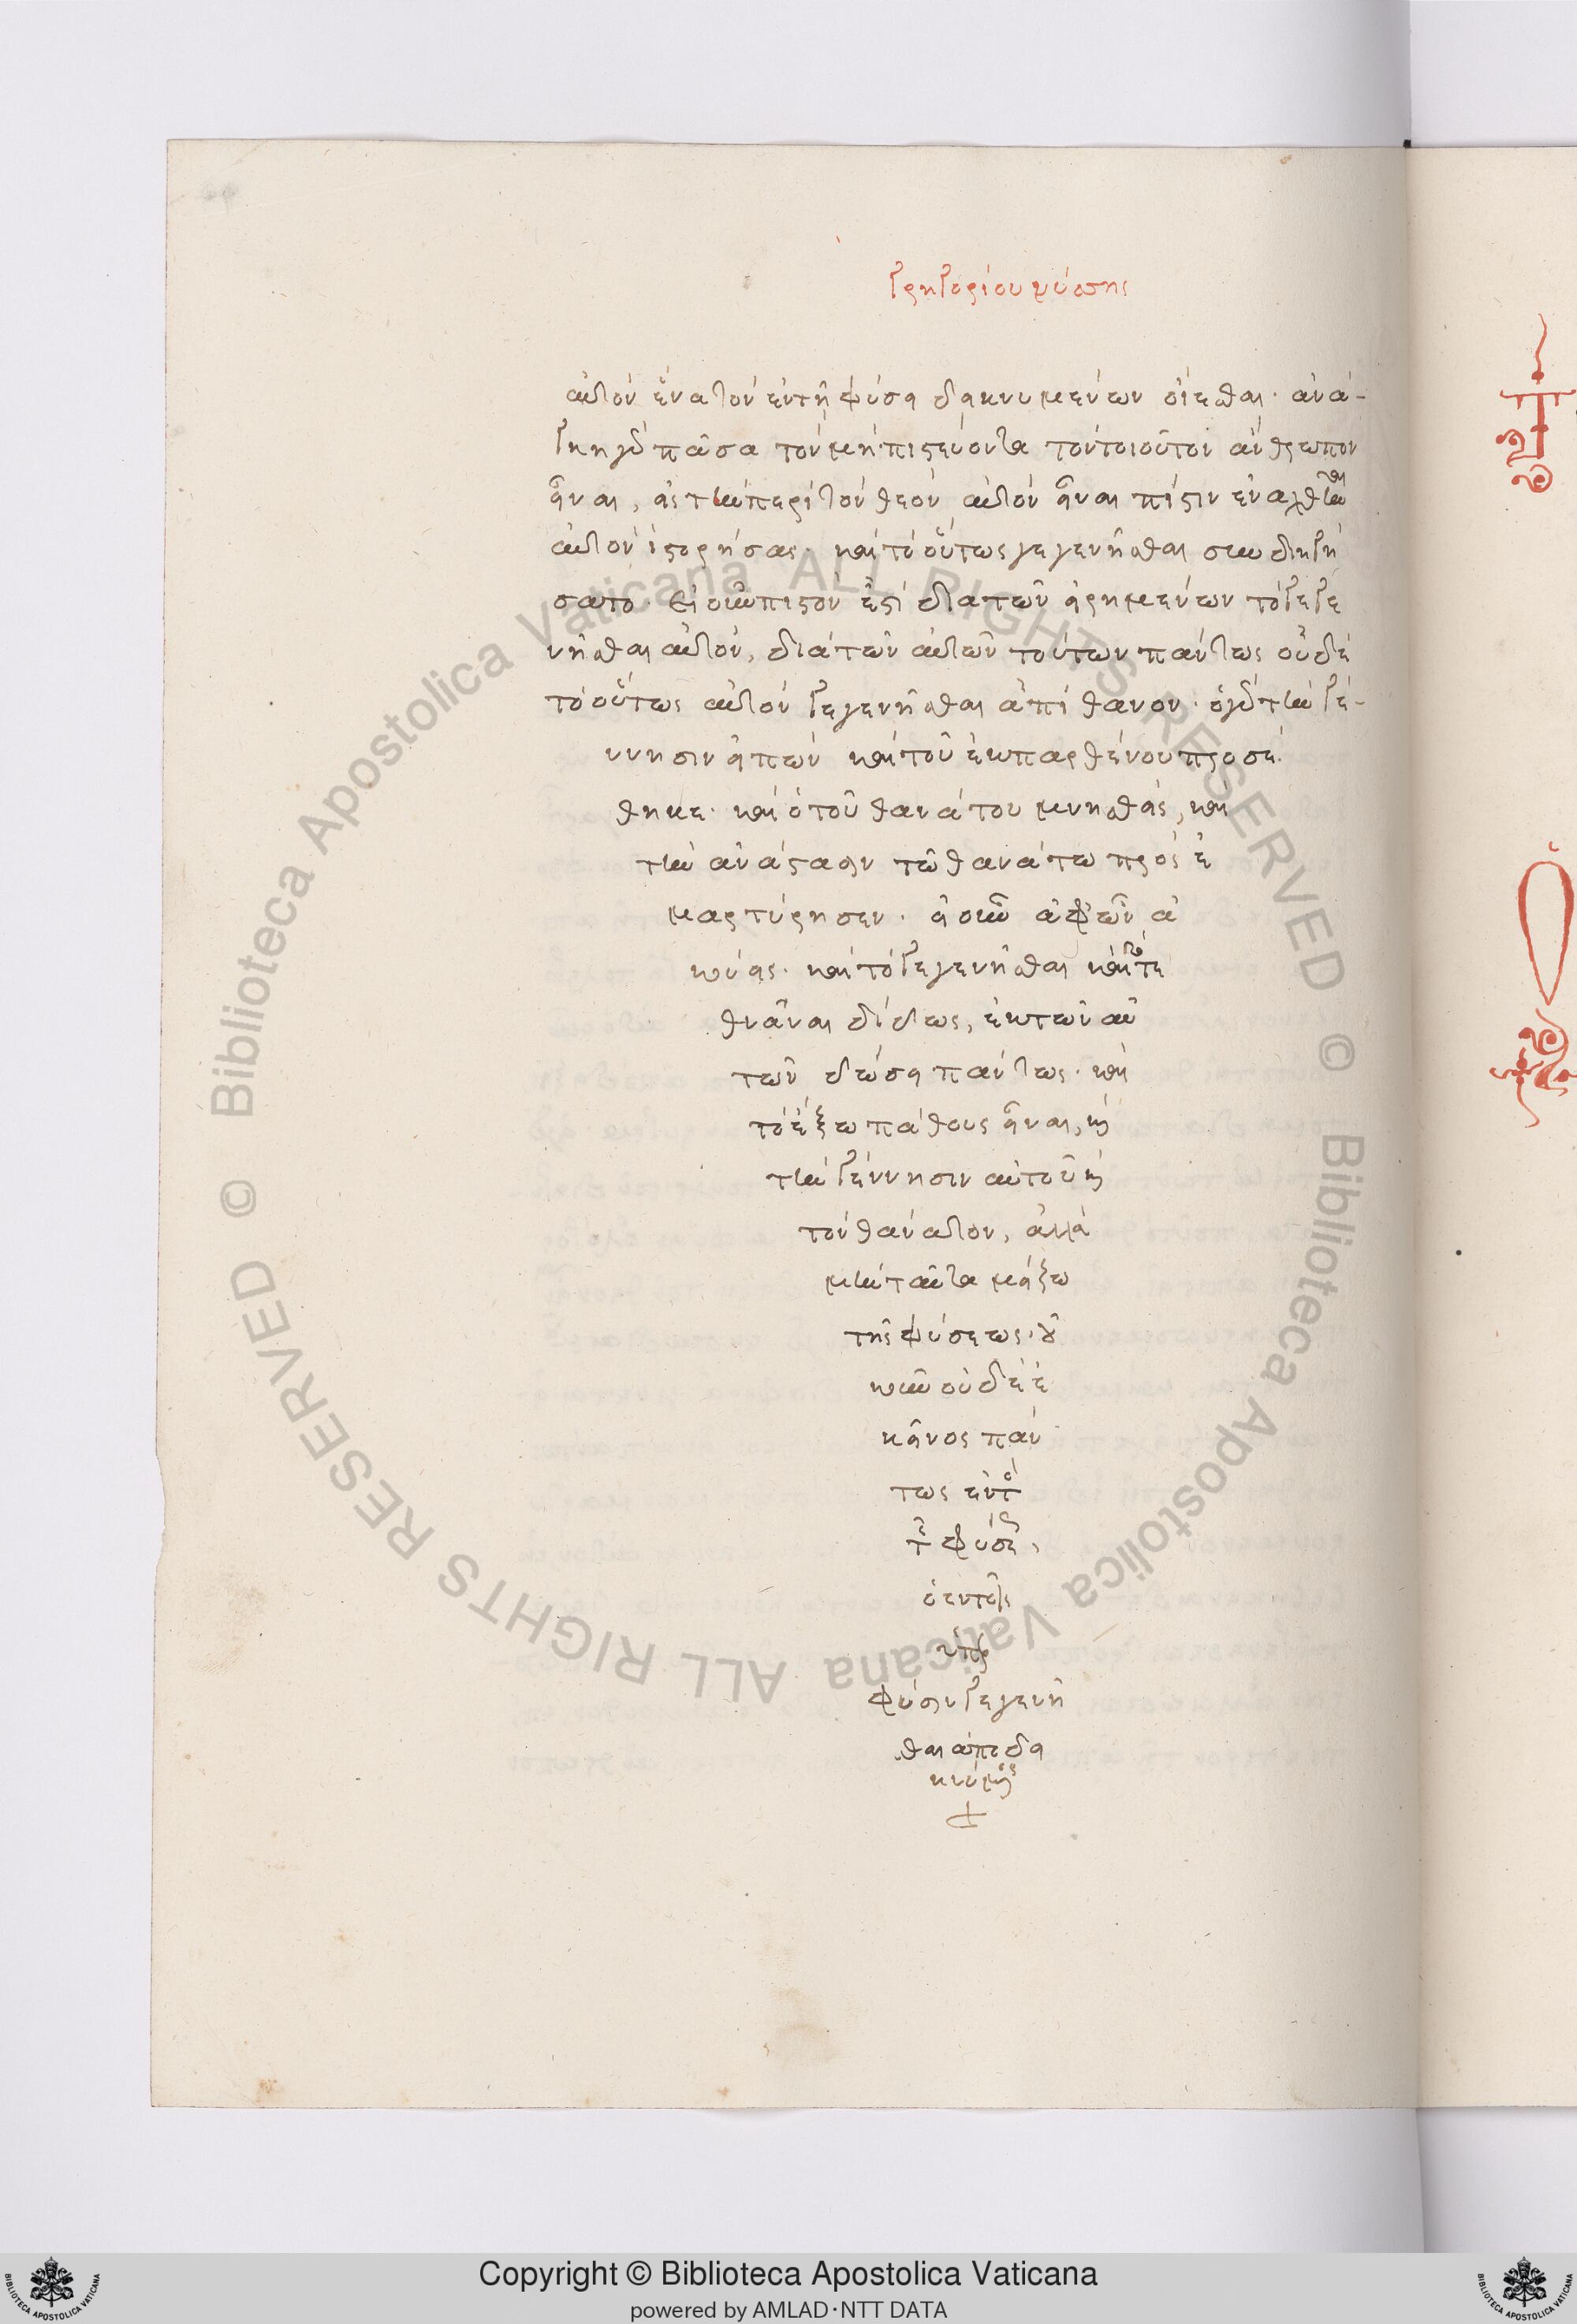 Γρηγορίου νύσης
αὐτὸν ἕνα τὸν ἐν τῇ φύσει δεικνυμένων οἴεσθαι· ἀνά-
γκη γὰρ πᾶσα τὸν μὴ πιστεύοντα τὸν τοιοῦτον ἄνθρωπον
εἶναι, εἰς τὴν περὶ τὸν θεὸν αὐτὸν εἶναι πίστιν ἐναχθῆναι
αὐτὸν ἱστορήσας· καὶ τὸ οὕτως γεγενῆσθαι συνδιηγή
σατο· Εἰ οὖν πιστόν ἐστι διὰ τῶν εἰρημένων τὸ γεγε
νῆσθαι αὐτὸν, διὰ τῶν αὐτῶν τούτων πάντως οὐδὲ
τὸ οὕτως αὐτὸν γεγενῆσθαι ἀπίθανον· ὁ γὰρ τὴν γέ-
ννησιν εἰπὼν καὶ τοῦ ἐκ παρθένου προσέ
θηκε· καὶ ὁ τοῦ θανάτου μνησθεὶς, καὶ
τὴν ἀνάστασιν τῷ θανάτω προσε
μαρτύρησεν· εἰ οὖν ἀφ' ὧν ἀ
κούεις· καὶ τὸ γεγενῆσθαι καὶ τὸ τε
θνᾶναι δίδως, ἐκ τῶν αὐ
τῶν δώσει πάντως· καὶ
τὸ ἔξω πάθους εἶναι, καὶ
τὴν γέννησιν αὐτοῦ καὶ
τὸν θάνατον, ἀλλὰ
μὴν ταῦτα μείζω
τῆς φύσεως· οὐ
κοῦν οὐδὲ ἐ
κεῖνος πάν
τως ἐντὸς
τῆς φύσεως,
ὁ ἐν τοῖς
ὑπὲρ
φύσιν γεγενῆ
σθαι ἀποδει
κνύμενος